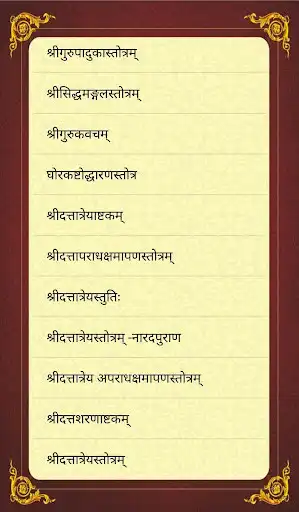 श्रीगुरुपादुकास्तोत्रम्
श्रीसिद्धमङ्गलस्तोत्रम्
श्रीगुरुकवचम्
घोरकष्टोद्धारणस्तोत्र
श्रीदत्तात्रेयाष्टकम्
श्रीदत्तापराधक्षमापणस्तोत्रम्
श्रीदत्तात्रेयस्तुतिः
श्रीदत्तात्रेयस्तोत्रम् -नारदपुराण
श्रीदत्तात्रेय अपराधक्षमापणस्तोत्रम्
श्रीदत्तशरणाष्टकम्
श्रीदत्तात्रेयस्तोत्रम्